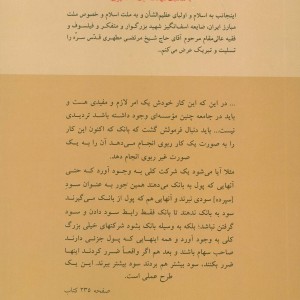 اینجانب به اسلام و اولیای عظیم‌الشأن و به ملت اسلام و خصوص ملت
مبارز ایران، ضایعه اسف‌انگیز شهید بزرگوار و متفکر و فیلسوف و
فقیه عالی‌مقام مرحوم آقای حاج شیخ مرتضی مطهری قدّس سرّه را
تسلیت و تبریک عرض می‌کنم..
... در این که این کار خودش یک امر لازم و مفیدی هست و
باید در جامعه چنین مؤسسه‌ای وجود داشته باشد تردیدی
نیست.. باید دنبال فرمولش گشت که بانک که اکنون این کار
را به صورت یک کار ربوی انجام می‌دهد آن را به یک
صورت غیر ربوی انجام دهد.
مثلا آیا می‌شود یک شرکت کلی به وجود آورد که حتـی
آنهایی که پول به بانک می‌دهند همین جور به عنوان سود
[سپرده] سودی نبرند و آنهایی هم که پول از بانک می‌گیرند
سود به بانک ندهند تا بانک فقط رابط سود دادن و سود
گرفتن نباشد؛ بلکه به وسیله بانک بشود شرکتهای خیلی بزرگ
کلی به وجود آورد و همه اینهایی که پول جزئی دارند
صاحب سهام باشند و بعد هم اگر واقعاً ضرر کردند اینها
ضرر بکنند، سود بیشتر هم بردند سود بیشتر ببرند. این یک
طرح عملی است.
صفحه ۲۳۵ کتاب